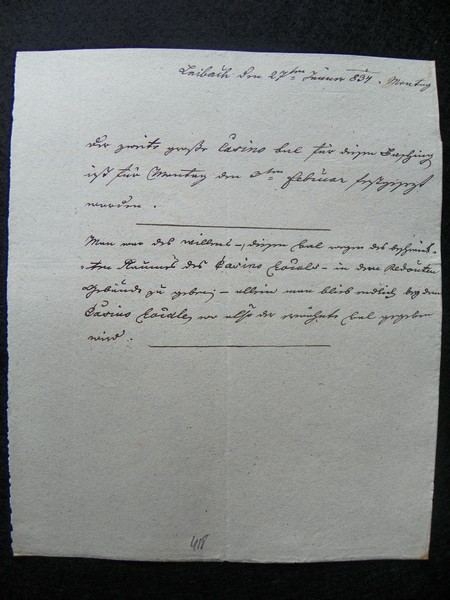 Laibach den 27ten Jänner 834. Montag
Der zweite große Casino bal für diesen Fasching
ist für Montag den 3ten Februar festgesezt
worden.
Man war des willens –, diesen bal wegen des beschränk-
ten Raumes des Casino Locals – in dem Redouten
Gebäude zu geben; – allein man blieb endlich bey dem
Casino Locale, wo also der erwähnte bal gegeben
wird.
418